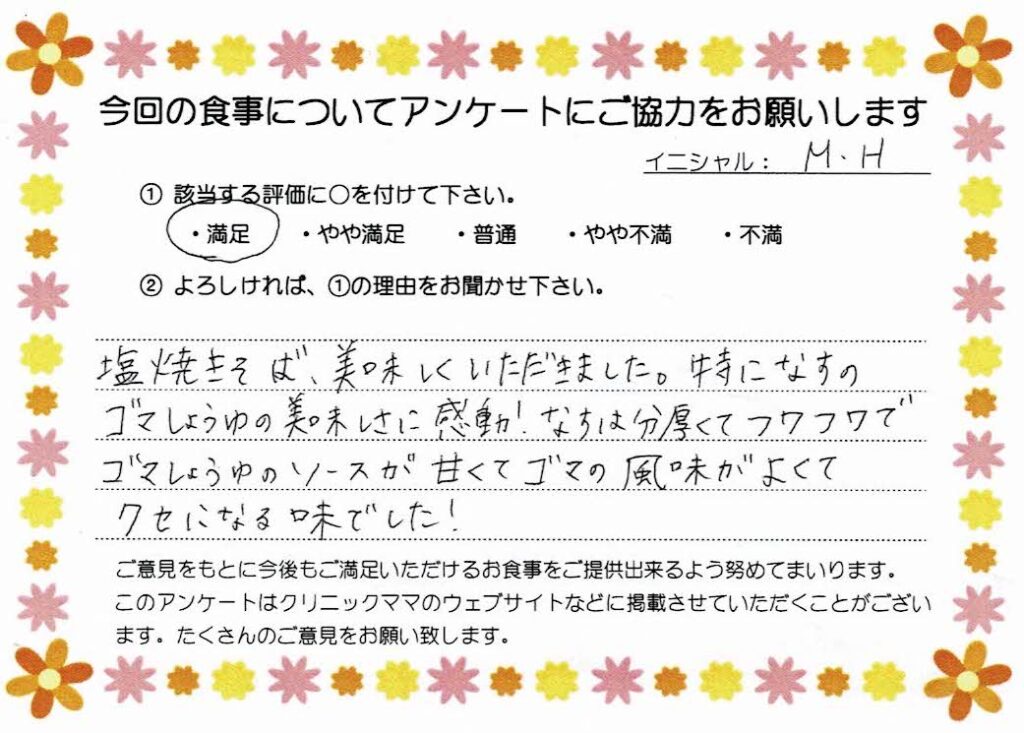 今回の食事についてアンケートにご協力をお願いします
イニシャル： M.H
① 該当する評価に〇を付けて下さい。
・満足 ・やや満足 ・普通 ・やや不満 ・不満
② よろしければ、①の理由をお聞かせ下さい。
塩焼きそば、美味しくいただきました。特になすの
ゴマしょうゆの美味しさに感動!なすは分厚くてフワフワで
ゴマしょうゆのソースが甘くてゴマの風味がよくて
クセになる味でした!
ご意見をもとに今後もご満足いただけるお食事をご提供出来るよう努めてまいります。
このアンケートはクリニックママのウェブサイトなどに掲載させていただくことがござい
ます。たくさんのご意見をお願い致します。